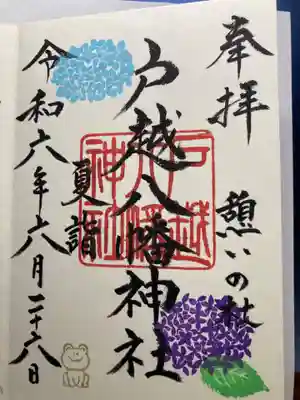 奉拝
憩いの杜
戸越八幡神社
戸越八幡神社
夏詣
令和六年六月二十六日